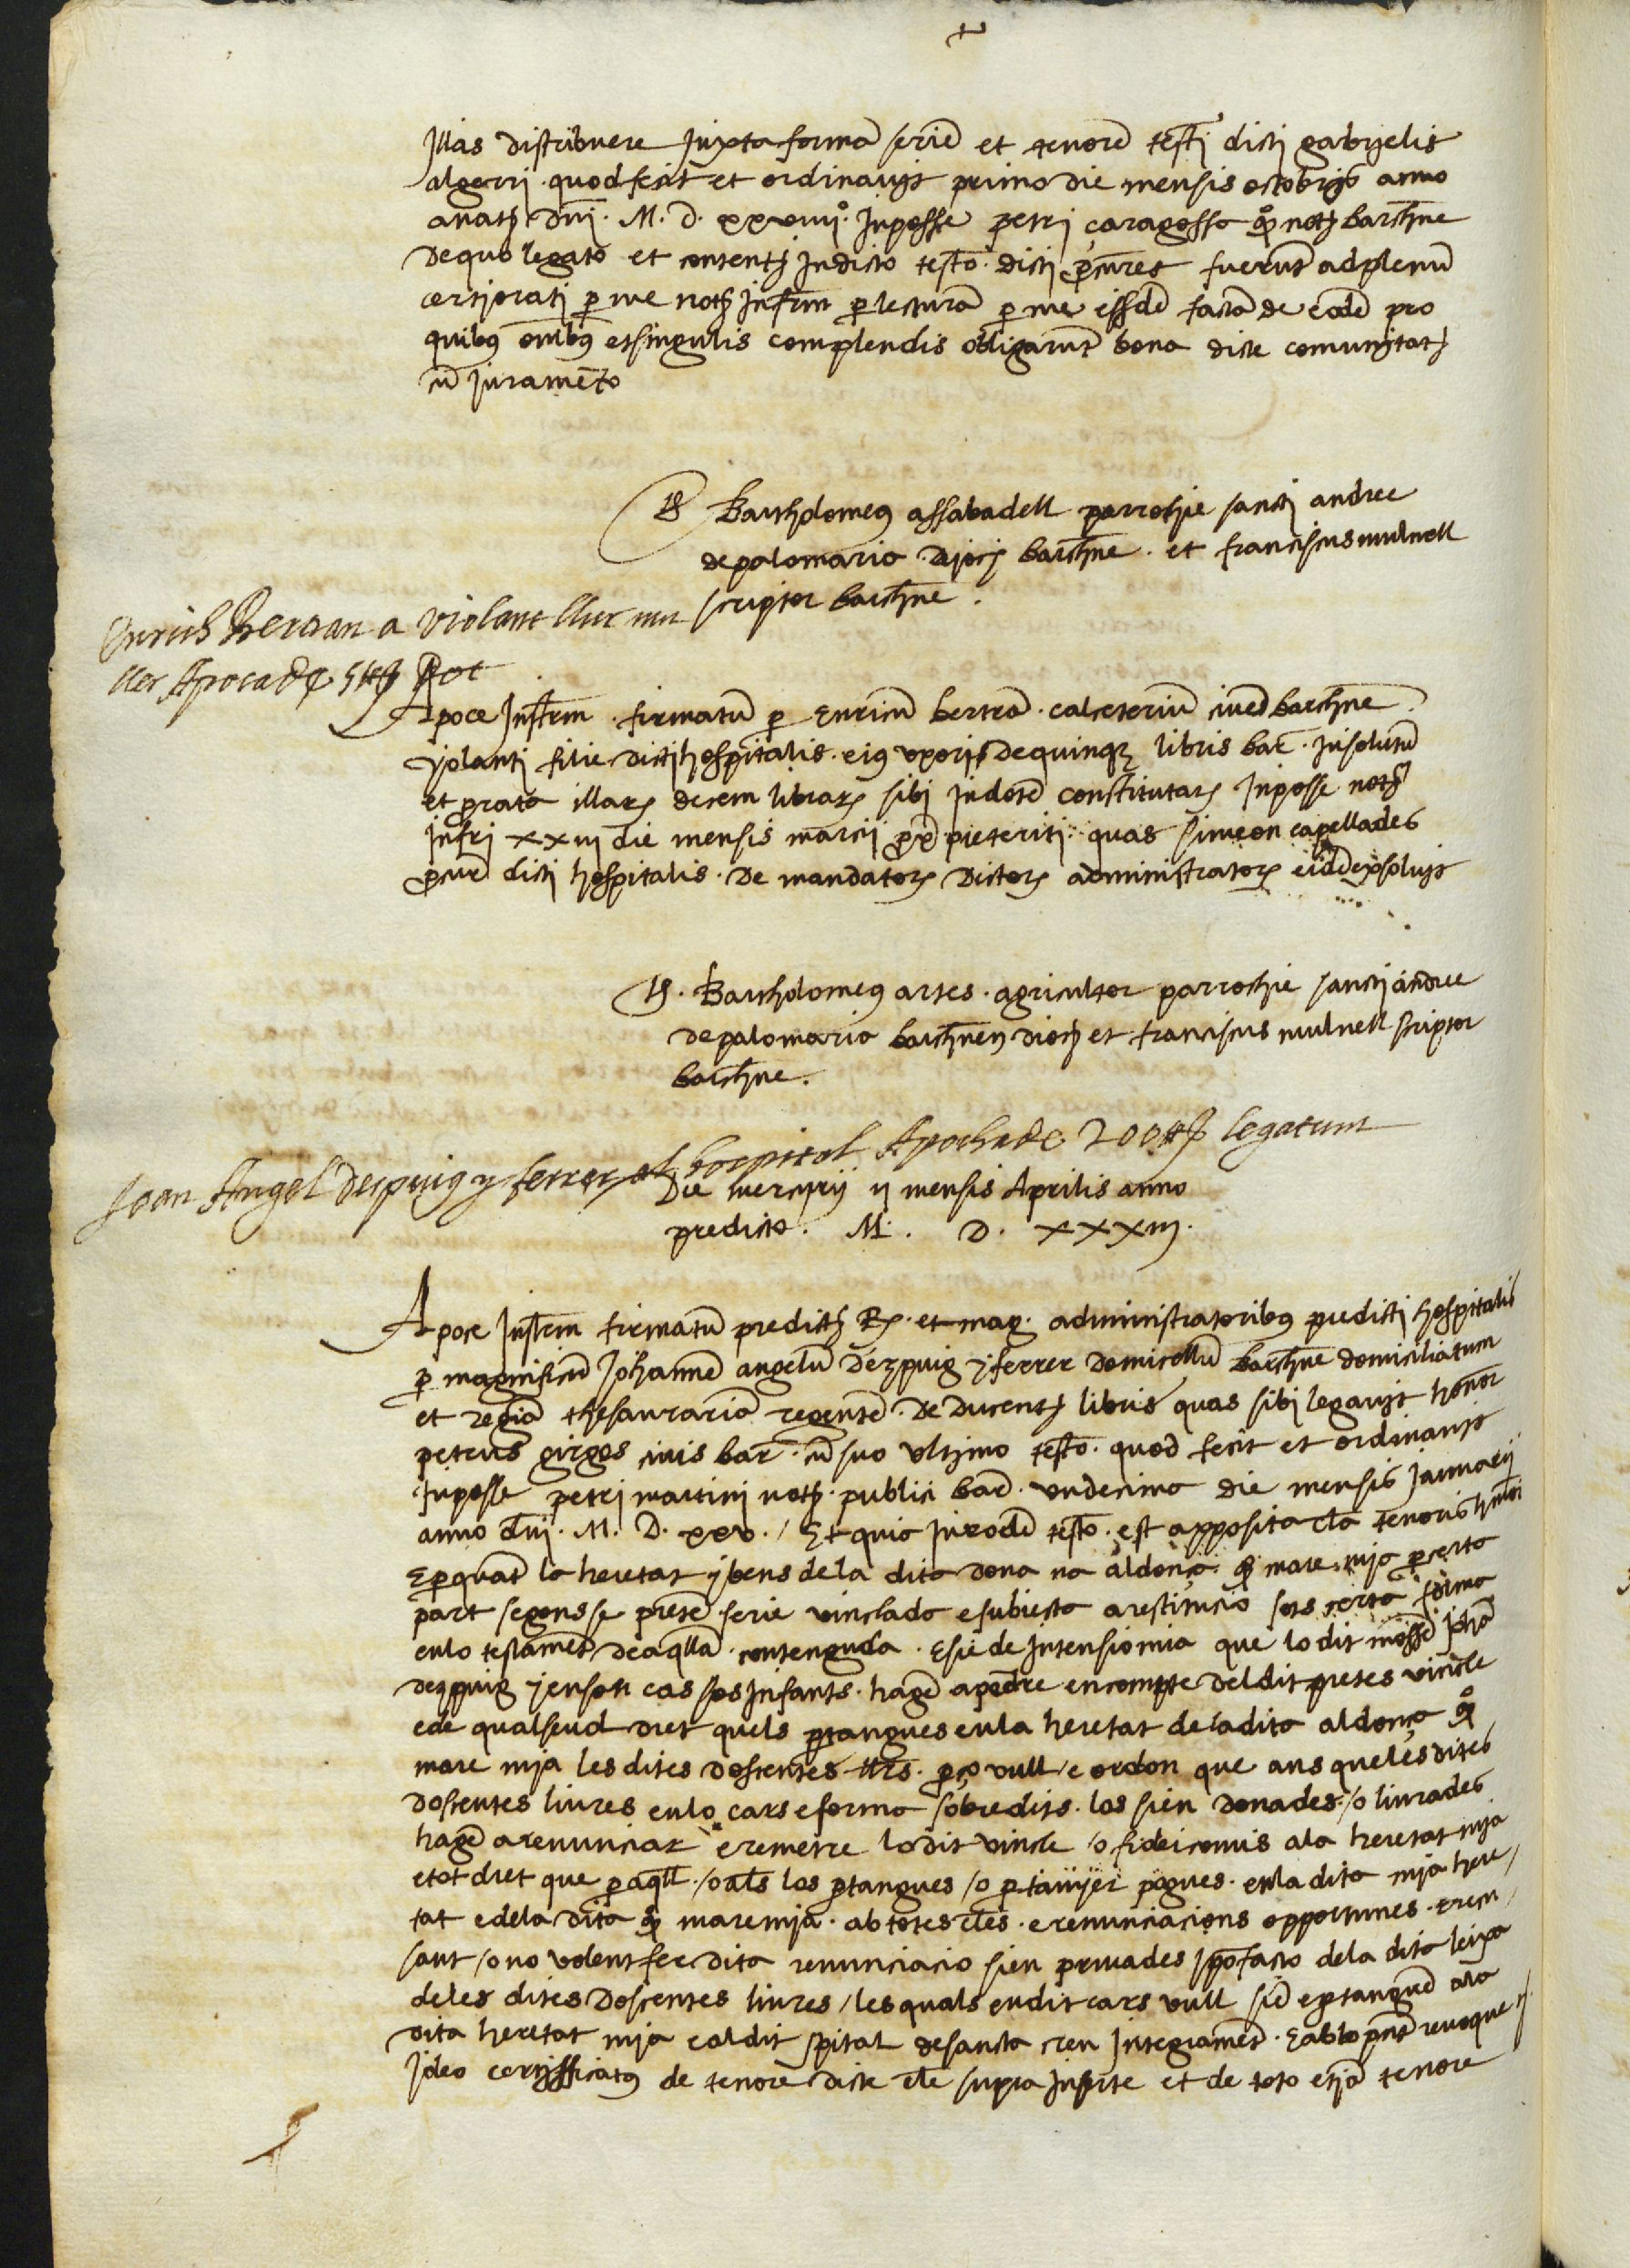 Illas distribuere Juxta formã seriẽ et tenorẽ testi dicti gabrielis
algerri . quod fecit et ordinavit primo die mensis octobris anno
a natj dnj . M . D . xxviiijº . Inposse petri çaragossa qº notj barchne
De quo legato et contentj Indicto testo . dicti pcures fuerunt adplenũ
certiorati p me notj Infrm p lecturã p me eisdẽ factã de eodẽ pro
quibus omibus et singulis complendis obligarunt bona dicte comunitatj
cũ juramẽto
Bartholomeus assabadell parrochie sancti andree
de palomario diocj barchne . et franciscus mulnell
scriptor barchne .
Enrich Bertran a Violant llur mu
ller Apoca de 5 ₶ Dot
Apoce Instrm . firmatũ p Enricũ bertrã . calceteriũ civẽ barchne
yolanti filie dicti hospitalis . eius uxoris De quinque libris bar . Insolutũ
et prata illarz decem librarz sibi Indotẽ constitutarz Inposse notj
Infri xxvj die mensis marcii px preteriti . quas simeon capellades
pcur dicti hospitalis . De mandatorz Dictorz administratorz eidẽ exsoluit
Bartholomeus artes . agricultor parrochie sancti andree
de palomario barchnen dioc et franciscus mulnell scriptor
barchne .
Joan Angel Despuig y ferrer al hospital Apocha de 200 ₶ legatum
Die mercurij ij mensis Aprilis anno
predicto . M . D . xxxiij .
Apoce Instrm firmatũ predictj Rj . et mag . administratoribus predicti hospitalis
p magnificũ Johannẽ angelũ Dezpuig y ferrer Domicellũ barchne domiciliatum
et regiã thesaurariã regentẽ . De Ducentj libris quas sibi legavit honor
petrus girgos civis bar . cũ suo ultimo testo . quod fecit et ordinavit
Inposse petri martini notj . publici bar . undecimo die mensis Januarij
anno dnj . M . D . xxv . / Et quia In eodẽ testo . est apposita cla tenoris hmoi
E p quant la heretat y bens de la dita dona na aldonça . qº mare mja p certa
part segons se pretẽ serie vinclada e subiecta a restitucio sots certa forma
en lo testamẽt de aqlla . contenguda . E sie de Intensio mia que lo dit mossẽ Johã
dezpuig y en son cas sos Infants . hagẽ a pẽdre en compte del dit pretes vincle
e de qualsevol dret quels ptangues en la heretat de la dita aldonça qº
mare mja les dites doscentes llrs . p ço vull e ordon que ans que les dites
doscentes liures en lo cars e forma sobredits . los sien donades / o liurades
hagẽ a renunciar e remetre lo dit vincle / o fideicomis a la heretat mja
e tot dret que p aqll . / o als los ptangues / o ptanyer pogues . en la dita mja here /
tat e de la dita qº mare mja . ab totes cles . e renunciacions opportunes . e recu /
sant / o no volent fer dita renunciacio sien privades Ipso facto de la dita leixa
de les dites Doscentes liures / les quals en dit cars vull siẽ e ptanguẽ a la
dita heretat mja e al dit spital de sancta creu Integramẽt . E ab lo pnt revoque etc
Ideo certifficatus de tenore dicte cle supra Insrte et de toto etiã tenore